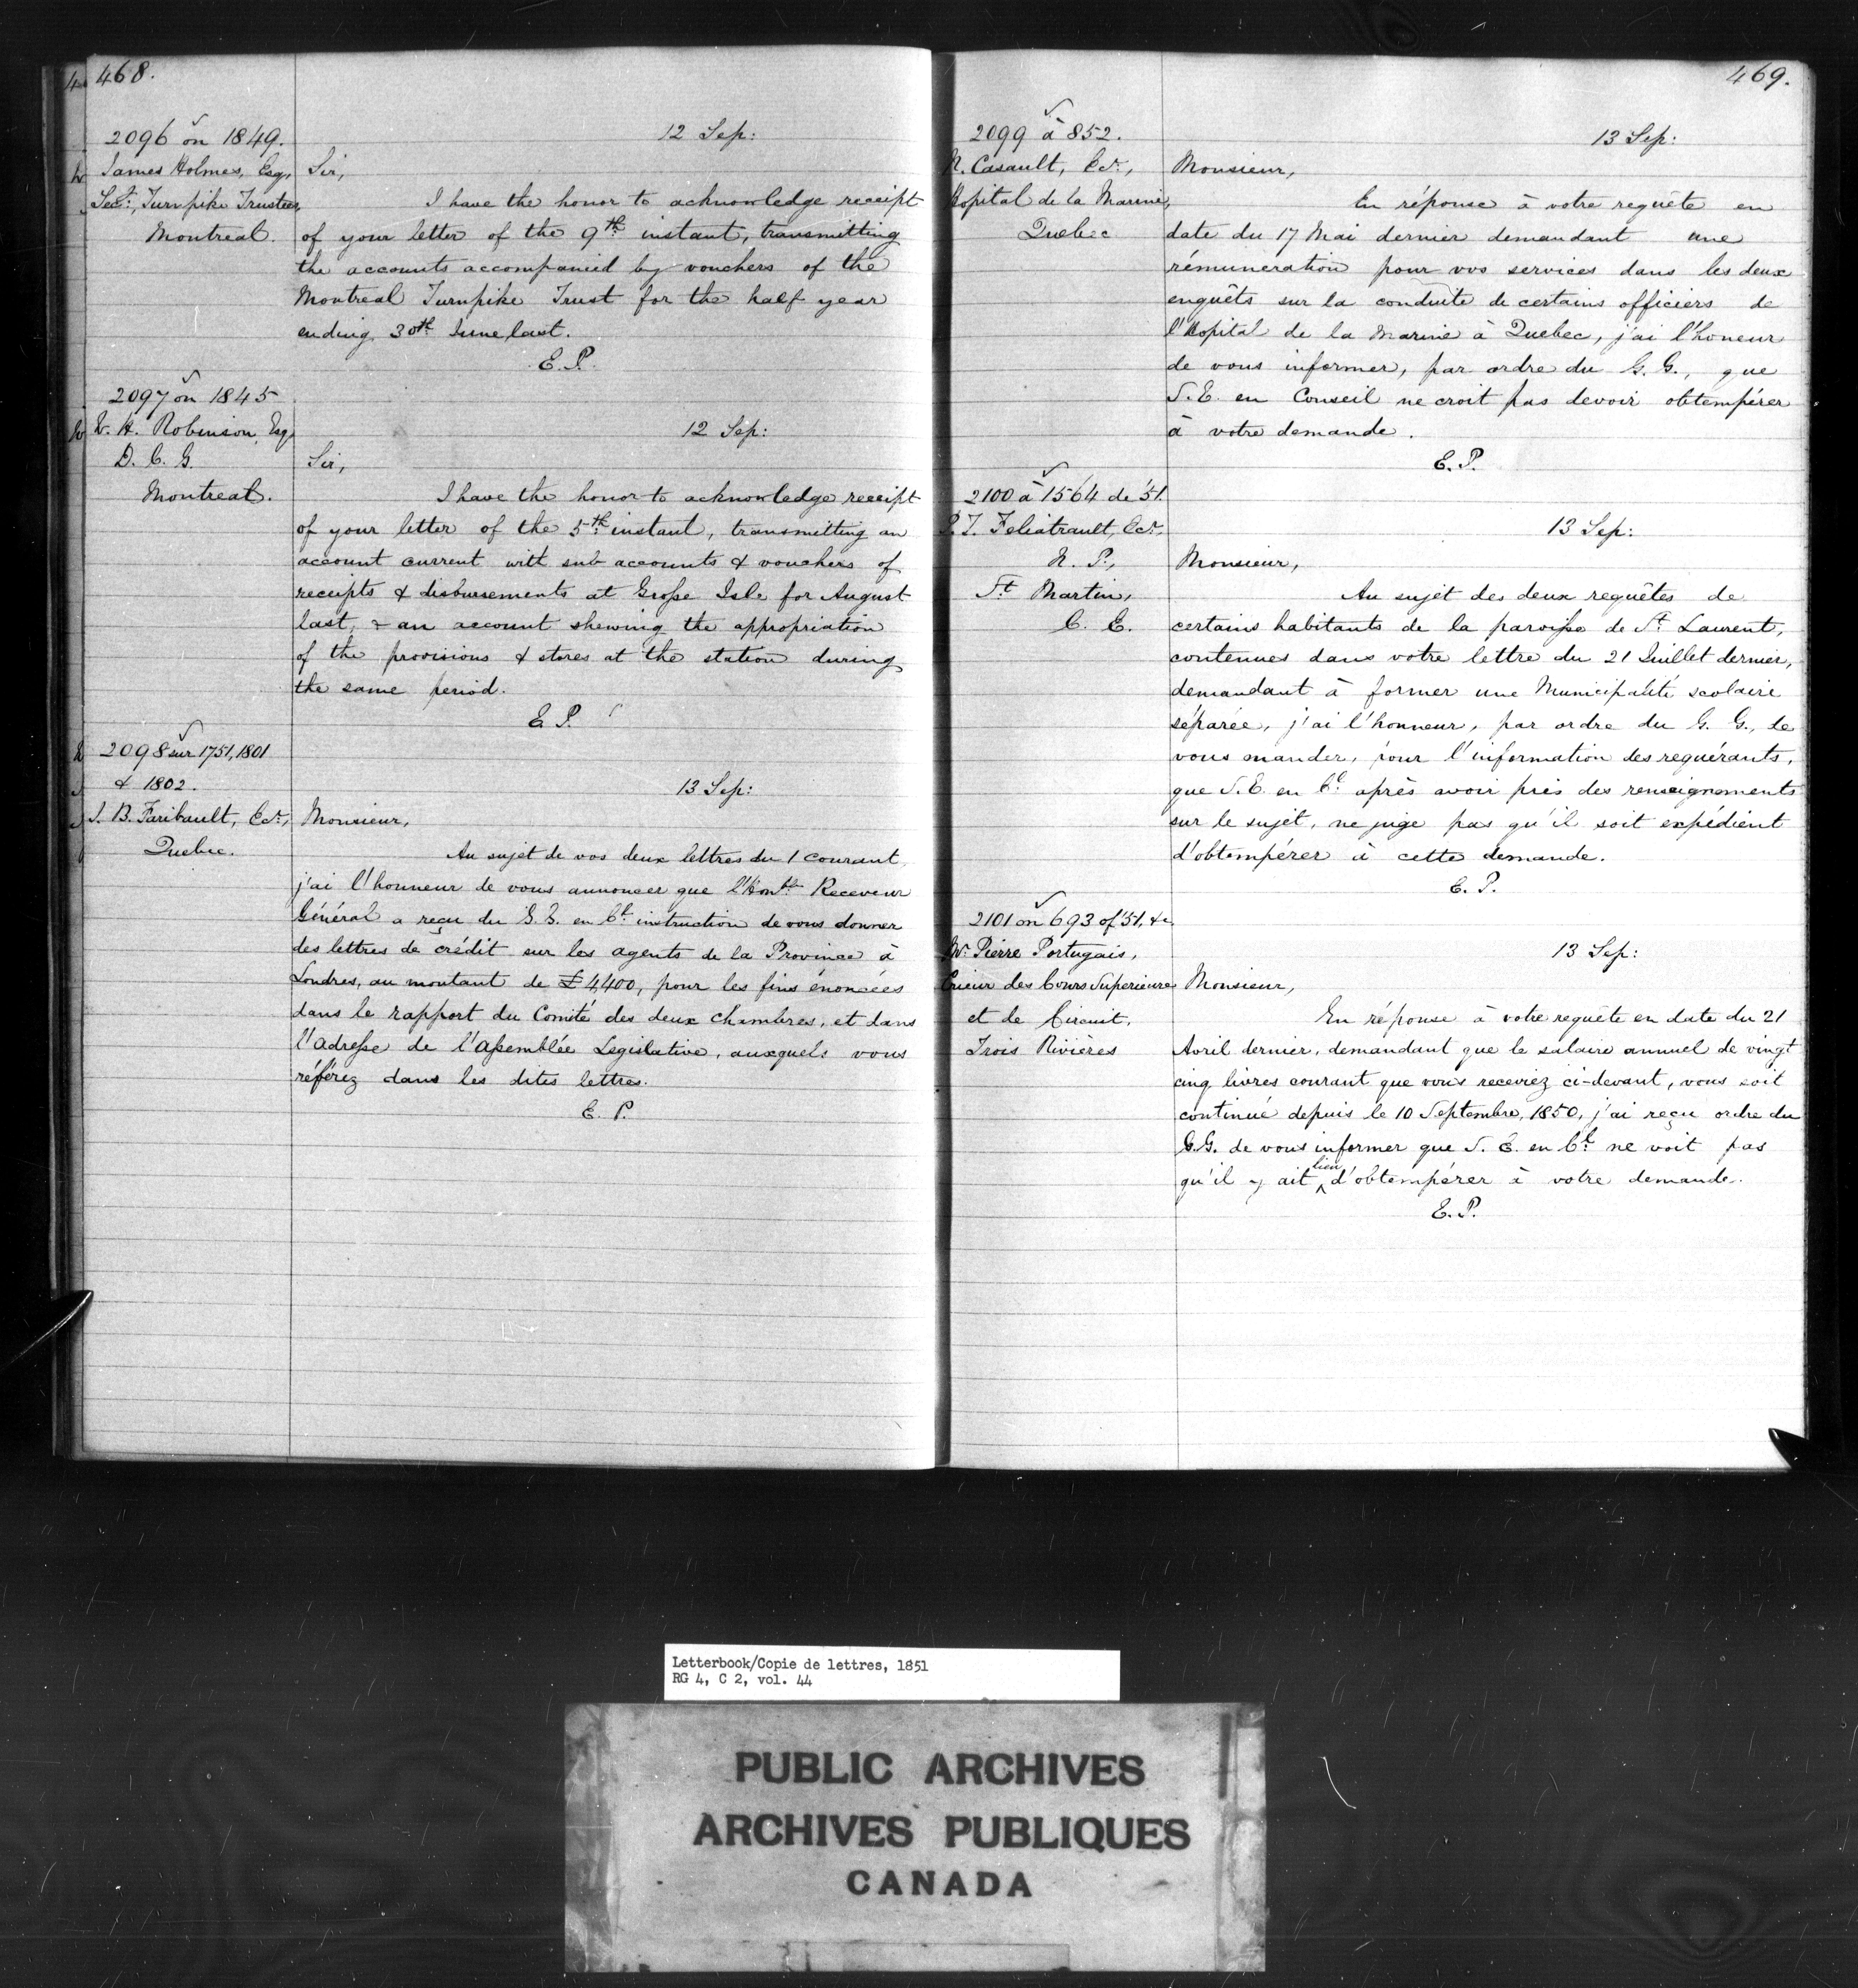 468.
2096 on 1849.
James Holmes, Esq,
Secy:, Turnpike Trustees,
Montreal.
12 Sep:
Sir,
I have the honor to acknowledge receipt
of your letter of the 9th instant, transmitting
the accounts accompanied by vouchers of the
Montreal Turnpike Trust for the half year
ending 30th June last.
E. P.
2097 on 1845
W. H. Robinson, Esq
D. C. G.
Montreal.
12 Sep:
Sir,
I have the honor to acknowledge receipt
of your letter of the 5th instant, transmitting an
account current with sub accounts & vouchers of
receipts & disbursements at Grosse Isle for August
last, & an account shewing the appropriation
of the provisions & stores at the station during
the same period.
E. P.
2098 sur 1751, 1801
& 1802.
J. B. Faribault, Ecr,
Quebec.
13 Sep:
Monsieur,
Au sujet de vos deux lettres du 1 courant,
j'ai l'honneur de vous annoncer que l'Honble Receveur
Général a reçu du G. G. en Cl instruction de vous donner
des lettres de crédit sur les agents de la Province à
Londres, au montant de £4400, pour les fins énoncées
dans le rapport du Comité des deux chambres, et dans
l'adresse de l'assemblée Legislative, auxquels vous
référez dans les dites lettres.
E. P.
469.
2099 à 852.
N. Casault, Ecr,
Hopital de la Marine,
Quebec
13 Sep:
Monsieur,
En réponse à votre requête en
date du 17 Mai dernier demandant une
rémuneration pour vos services dans les deux
enquêts sur la conduite de certains officiers de
l'Hopital de la Marine à Quebec, j'ai l'honeur
de vous informer, par ordre du G. G., que
S. E. en Conseil ne croit pas devoir obtempérer
à votre demande.
E. P.
2100 à 1564 de '51.
Feliatrault, Ecr,
N. P.,
St Martin,
C. E.
13 Sep:
Monsieur,
Au sujet des deux requêtes de
certains habitants de la paroisse de St Laurent,
contenues dans votre lettre du 21 Juillet dernier,
demandant à former une Municipalité scolaire
séparée, j'ai l'honneur, par ordre du G. G., de
vous mander, pour l'information des requérants,
que S. E. en Cl après avoir pris des renseignements
sur le sujet, ne juge pas qu'il soit expédient
d'obtempérer à cette demande.
E. P.
2101 on 693 of '51, &c
Mr Pierre Portugais,
Crieur des Cours Superieure
et de Circuit,
Trois Rivières
13 Sep:
Monsieur,
En réponse à votre requête en date du 21
Avril dernier, demandant que le salaire annuel de vingt
cinq livres courant que vous receviez ci-devant, vous soit
continué depuis le 10 Septembre, 1850, j'ai reçu ordre du
G. G. de vous informer que S. E. en Cl ne voit pas
qu'il y ait lieu d'obtempérer à votre demande.
E. P.
Letterbook/Copie de lettres, 1851
RG 4, C 2, vol. 44
PUBLIC ARCHIVES
ARCHIVES PUBLIQUES
CANADA